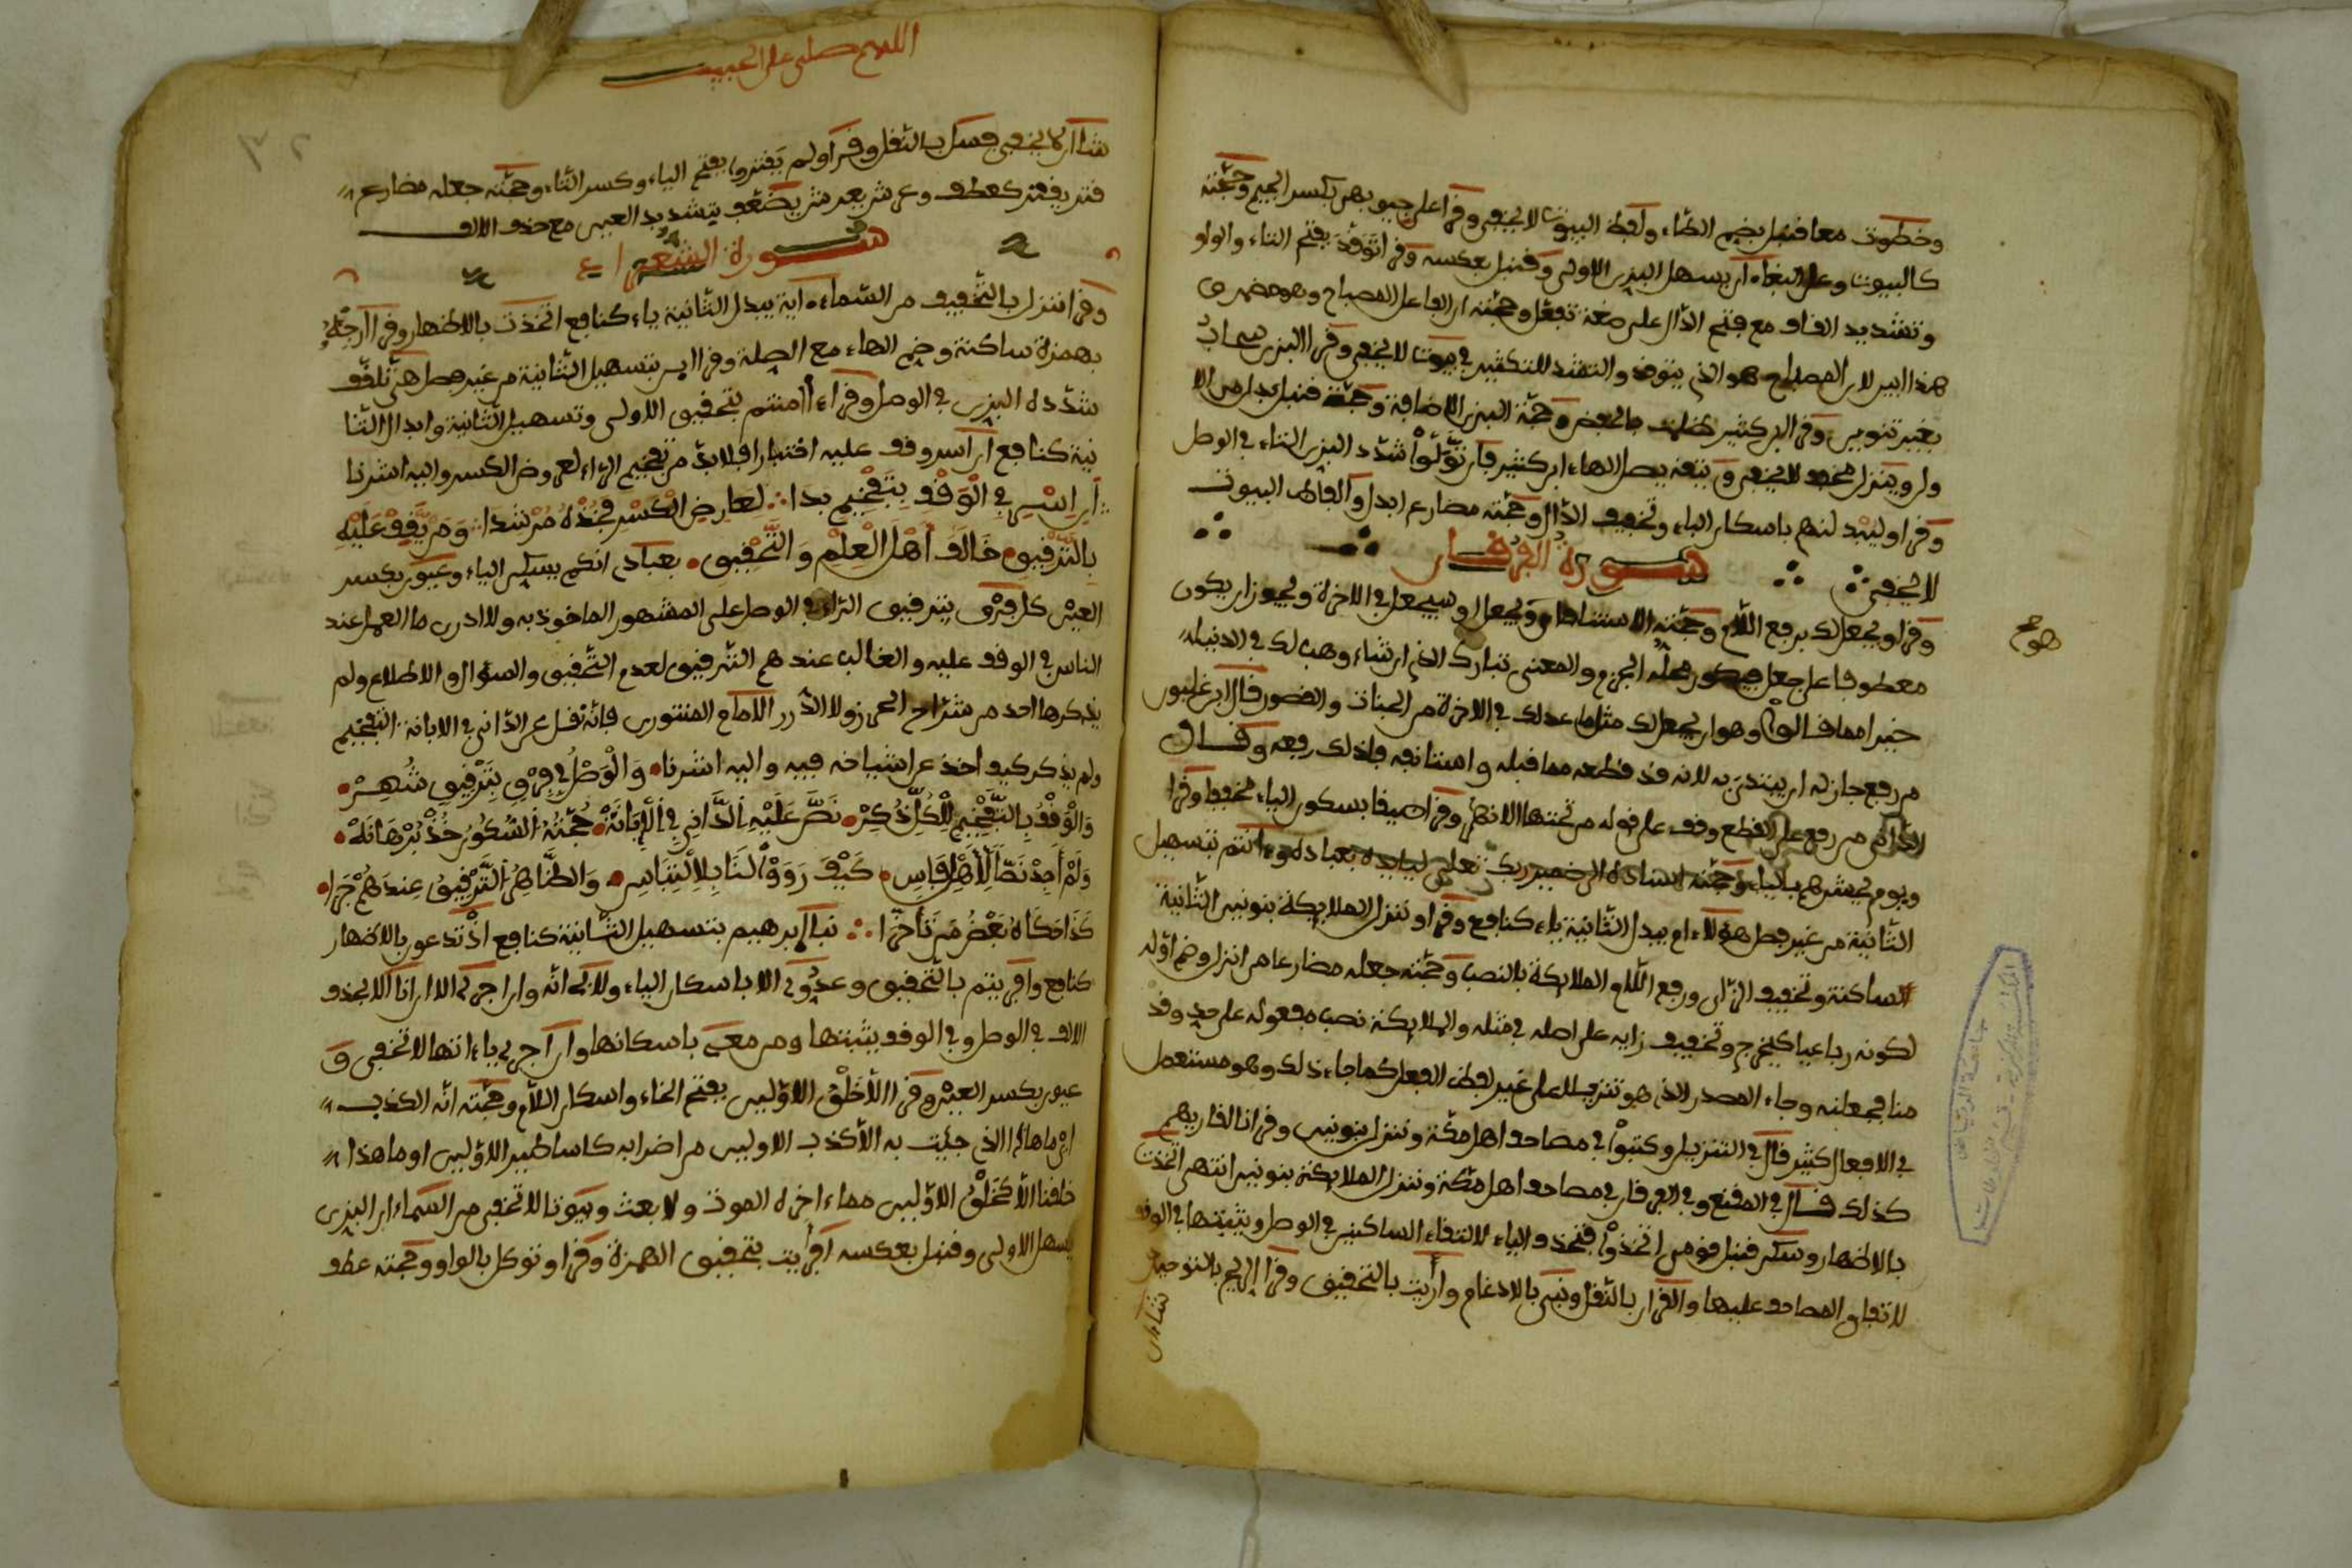 وخطوت معا قنبل بضم الطاء ولفظ البيوت لا يخفى وقرا على جيوبهن بكسر الجيم وحجته
كالبيوت وعلى البغاء ان يسهل البزى الاولى وقنبل بعكسه وقرا توقد بفتح التاء والواو
وتشديد القاف مع فتح الدال على صفة تفعل وحجته ان الفاعل المصباح وهو مضمر في
هذا البير لان المصباح هو الذي يتوقد والتشد للتكثير في بيوت لا يخفى وقرا البزى سحاب
بغير تنوين وقرا ابن كثير ظلمت بالخفض وحجة البزى الاضافة وحجة قنبل بدل من الا
ولى وينزل مخفف لا يخفى ويتقه بصل الهاء ابن كثير فان تولوا شدد البزى التاء في الوصل
وقرا وليبدلنهم باسكان الباء وتخفيف الدال وحجته مضارع ابدل والفاظ البيوت
لا تخفى سورة الفرقان
وقرا ويجعل لك برفع اللام وحجته الاستئناف اي ويجعل او سيجعل في الاخرة ويجوز ان يكون
معطوفا على جعل فيكون محله الجزم والمعنى تبارك الذي ان شاء وهب لك في الدنيا
خيرا مما قالوا وهو ان يجعل لك مثل ما عدلك في الاخرة من الجنات والقصور قال ابن غلبون
من رفع جاز له ان يبتدئ به لانه قد قطعه مما قبله واستانفه فلذلك رفعه وقال
الداني من رفع على القطع وقف على قوله من تحتها الانهر وقرا ضيقا بسكون الياء مخففا وقرا
ويوم يحشرهم بالياء وحجته اسناده الى ضمير ربك تعلى لياييده بعباده وءانتم بتسهيل
الثانية من غير فصل هؤلاء ام يبدل الثانية ياء كنافع وقرا وننزل الملايكة بنونين الثانية
الساكنة وتخفيف الزاى ورفع اللام والملايكة بالنصب وحجته جعله مضارعا من انزل وضم اوله
لكونه رباعيا كيخرج وتخفيف زايه على اصله في مثله والملايكة نصب مفعوله على حد وقد
منا فجعلنه وجاء المصدر الذي هو تنزيلا على غير لفظ الفعل كما جاء ذلك وهو مستعمل
في الافعال كثير قال في التنزيل وكتبوا في مصاحف اهل مكة وننزل بنونين وقرانا القاريهم
كذلك قال في المقنع وفي الفرقان في مصاحف اهل مكة وننزل الملايكة بنونين انتهى اتخذت
بالاظهار وسكن قنبل قومي اتخذوا فتحذف الياء لالتقاء الساكنين في الوصل ويثبتها في الوقف
لاتفاق المصاحف عليها والقران بالنقل ونبى بالادغام وارايت بالتحقيق وقرا الريح بالتوحيد
نشاان
اللهم صلى على الحبيب
نشاان لا يخفى فسل بالنقل وقرا ولم يقتروا بفتح الياء وكسر التاء وحجته جعله مضارع
قتر يقتر كعطف وعن شريعر شر يضعف بتشديد العين مع حذف الالف
سورة الشعراء
وقرا ننزل بالتخفيف من السماء اية يبدل الثانية ياء كنافع اتخذت بالاظهار وقرا ارجئه
بهمزة ساكنة وضم الهاء مع الصلة وقرا اين بتسهيل الثانية من غير فصل هي تلقف
شدده البزى في الوصل وقرا ءاامنتم بتحقيق الاولى وتسهيل الثانية وابدال الثا
نية كنافع ان اسر وقف عليه اختبارا فلا بد من تفخيم الراء لعروض الكسر واليه اشرنا
ان اسر في الوقف بتفخيم بدا لعارض الكسر فخذه مرشدا ومن يقف عليه
بالترقيق خالف اهل العلم والتحقيق بعبادى انكم يسكن الياء وعيون بكسر
العين كل فرق بترقيق الراء في الوصل على المشهور الماخوذ به ولا ادرى ما العمل عند
الناس في الوقف عليه والغالب عندهم الترقيق لعدم التحقيق والسؤال والاطلاع ولم
يذكرها احد من شراح الحرز ولا الدرر الا الامام المنتورى فانه نقل عن الدانى في الابانة التفخيم
ولم يذكر كيف اخذ عن اشياخه فيه واليه اشرنا والوصل في فرق بترقيق شهر
والوقف بالتفخيم للكل ذكر نص عليه الدانى في الابانة حجته السكون خذ برهانه
ولم اجد نصا لاهل فاس كيف رووا لنا بلا التباس والظاهر الترقيق عندهم جرا
كذا حكاه بعض من تأخرا نبا ابرهيم بتسهيل الثانية كنافع اذ تدعون بالاظهار
كنافع وافريتم بالتحقيق وعدو لى الا باسكان الياء ولابى انه وان اجرى الا ان انا الا يحذف
الالف في الوصل وفي الوقف يثبتها ومن معى باسكانها وان اجرى ياء انها لا تخفى و
عيون بكسر العين وقرا الا خلق الاولين بفتح الخاء واسكان اللام وحجته انه الكذب
اى ما هذا الذي جئت به الا كذب الاولين من اضرابه كاساطير الاولين او ما هذا
خلقنا الا كخلق الاولين مماء اخره الموت ولا بعث وبيوتا لا تخفى من السماء ان البزى
يسهل الاولى وقنبل بعكسه افريت بتحقيق الهمزة وقرا وتوكل بالواو وحجته عطف